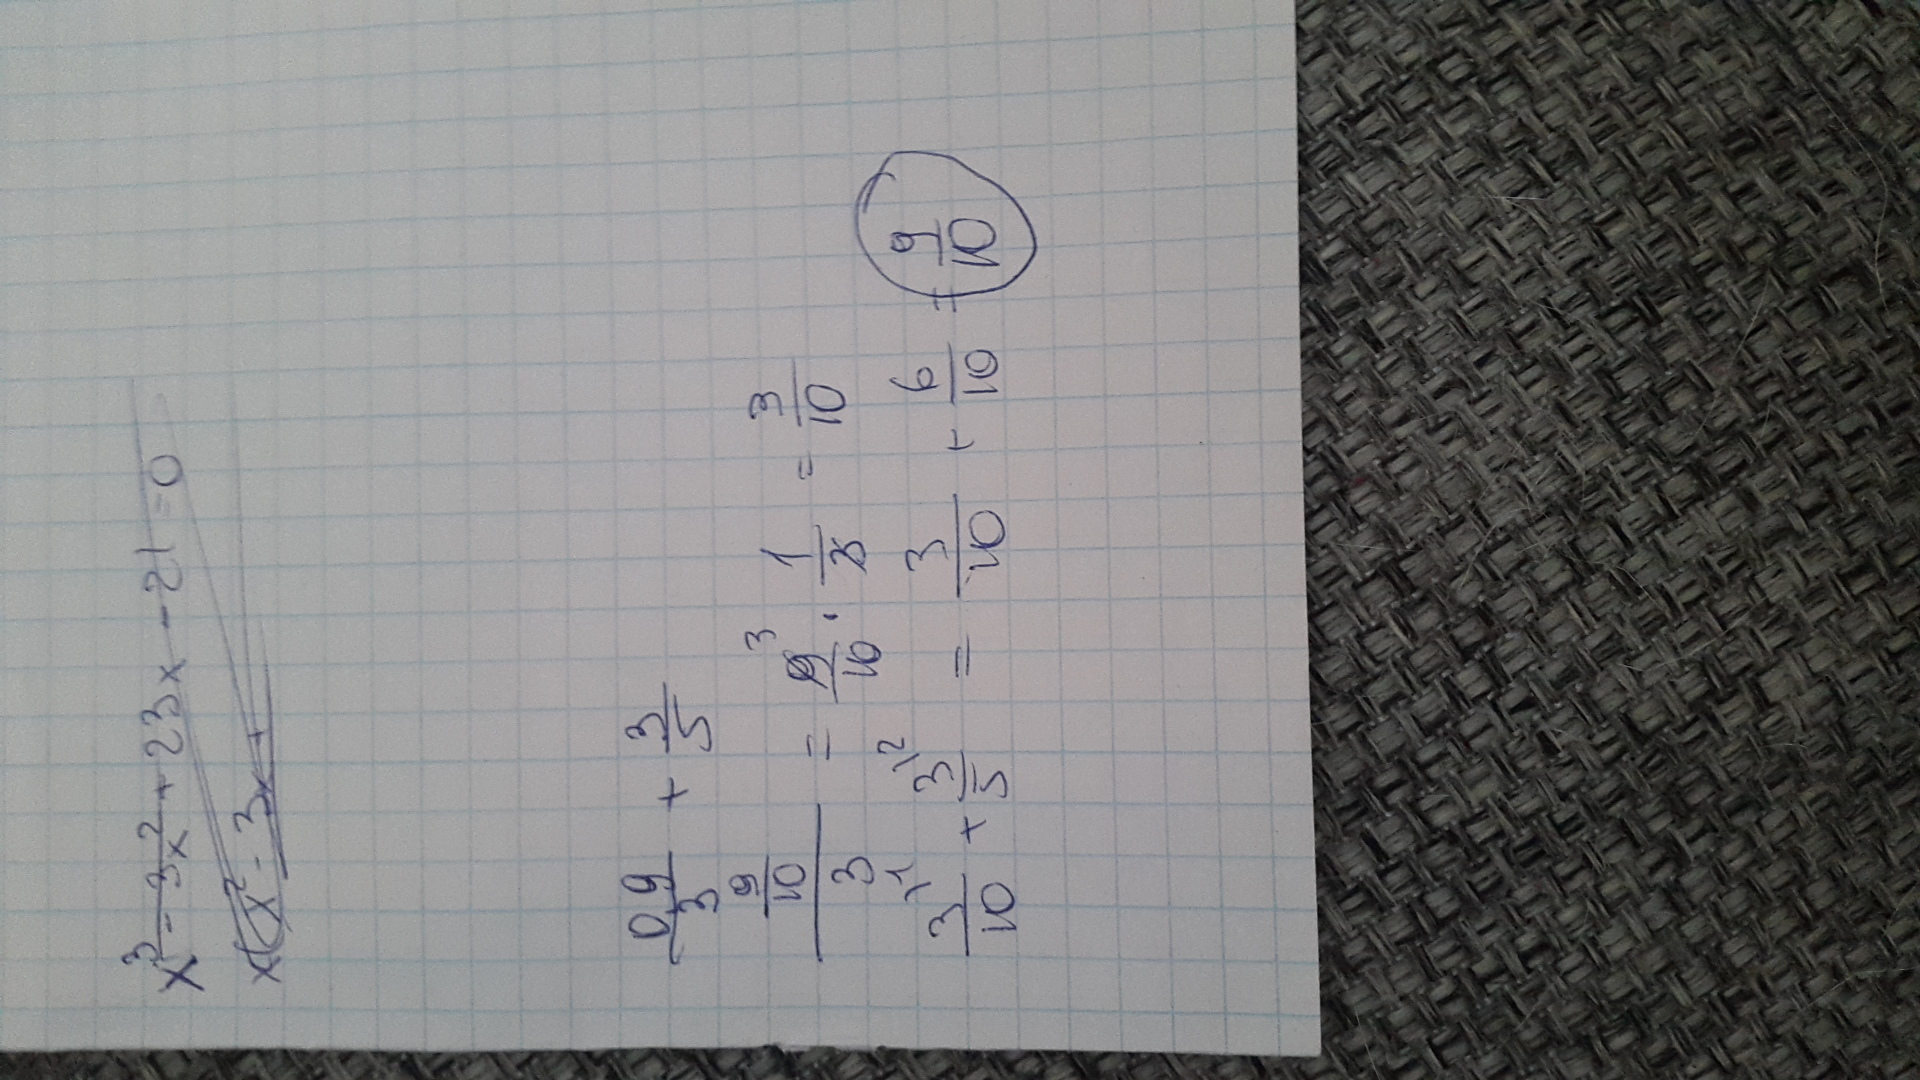 x³ - 3x² + 23x - 21 = 0
x(x² - 3x +
0,9/3 + 3/5
(9/10)/3 = 9/10 · 1/3 = 3/10
3
3/10 + 3/5 = 3/10 + 6/10 + 9/10
1 2